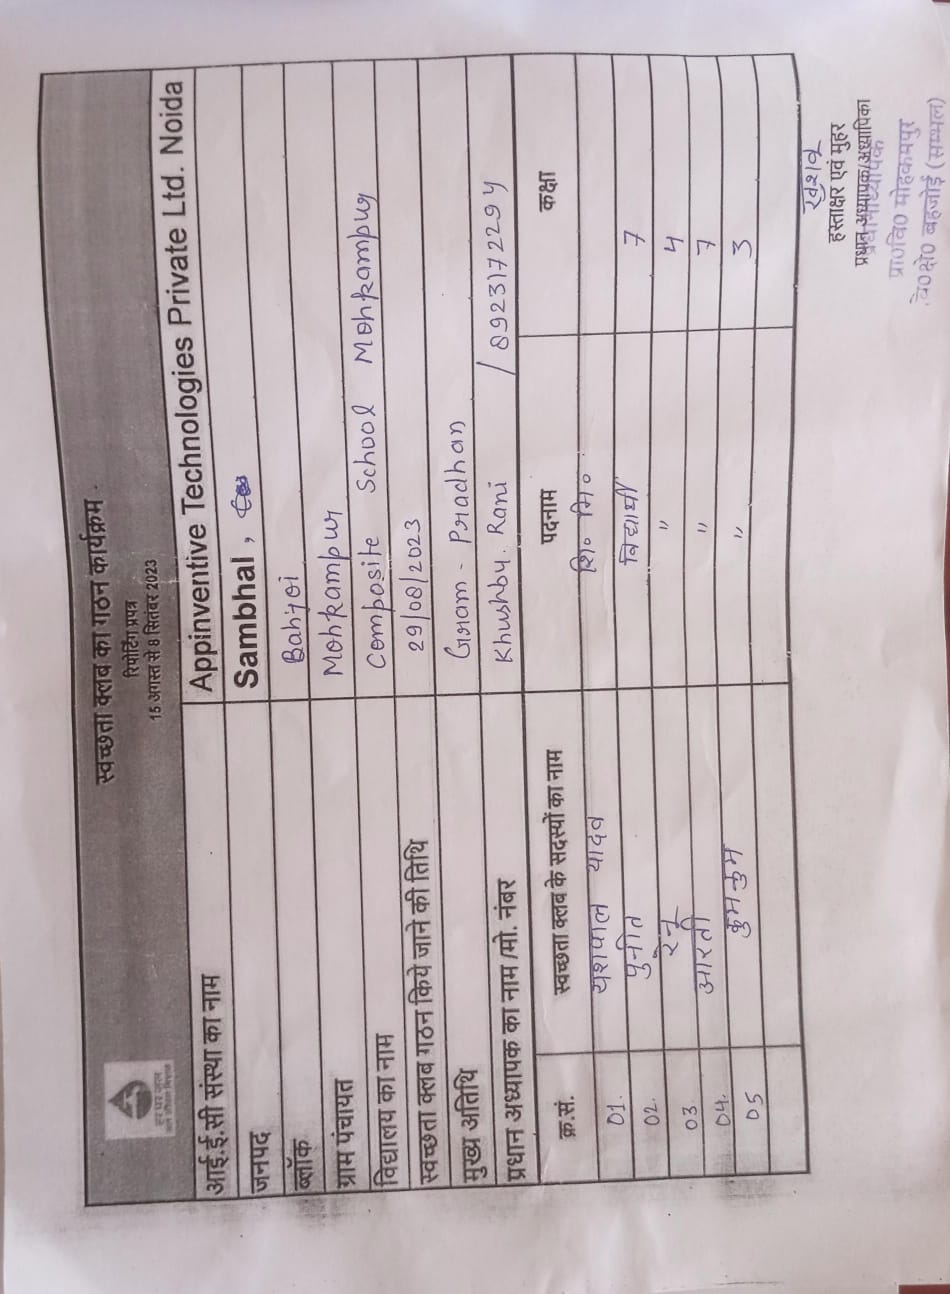 हर घर जल
जल जीवन मिशन
स्वच्छता क्लब का गठन कार्यक्रम
रिपोर्टिंग प्रपत्र
15 अगस्त से 8 सितंबर 2023
आई.ई.सी संस्था का नाम Appinventive Technologies Private Ltd. Noida
जनपद Sambhal ,
ब्लॉक Bahjoi
ग्राम पंचायत Mohkampur
विद्यालय का नाम Composite School Mohkampur
स्वच्छता क्लब गठन किये जाने की तिथि 29/08/2023
मुख्य अतिथि Gram - Pradhan
प्रधान अध्यापक का नाम /मो. नंबर Khushbu Rani / 8923172294
क्र.सं. स्वच्छता क्लब के सदस्यों का नाम पदनाम कक्षा
01. यशपाल यादव शि० मि०
02. पुनीत विद्यार्थी 7
03. रेनू " 4
04. आरती " 7
05 कुमकुम " 3
हस्ताक्षर एवं मुहर
प्रधान अध्यापक/अध्यापिका
प्रधानाध्यापक
प्रा०वि० मोहकमपुर
वे०क्षे० बहजोई (सम्भल)